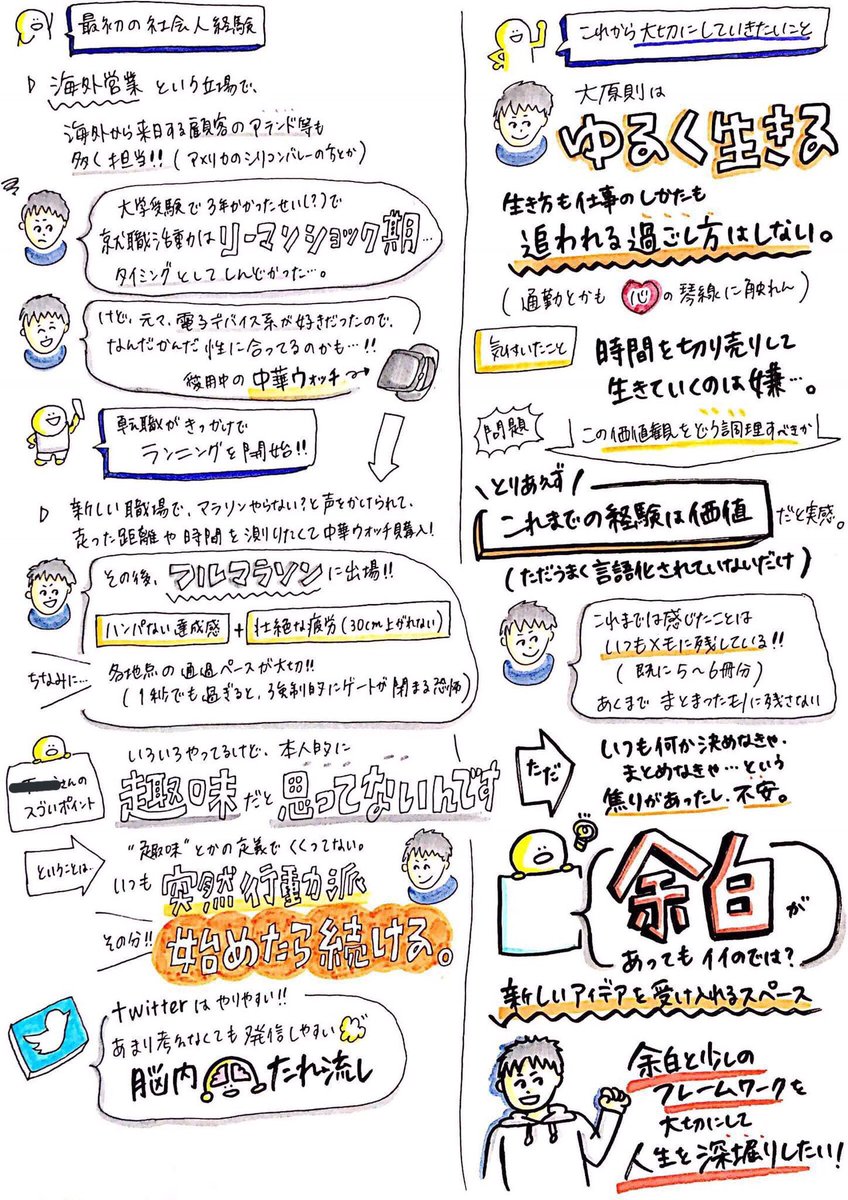 最初の社会人経験
海外営業 という立場で、
海外から来日する顧客のアテンド等も
多く担当!! (アメリカのシリコンバレーの方とか)
大学受験で3年かかったせい(?)で
就職活動は リーマンショック期…
タイミングとしてしんどかった…。
けど、元々、電子デバイス系が好きだったので、
なんだかんだ 性に合ってるのかも…!!
使用中の 中華ウォッチ→
転職がきっかけで
ランニングを開始!!
新しい職場で、マラソンやらない?と声をかけられて、
走った距離や時間を測りたくて中華ウォッチ購入!
その後、フルマラソンに出場!!
ハンパない達成感 + 壮絶な疲労(30cm上がれない)
ちなみに…
各地点の通過ペースが大切!!
(1秒でも過ぎると、強制的にゲートが閉まる恐怖)
さんの
スゴいポイント
いろいろやってるけど、本人的に
趣味だと思ってないんです
ということは…
"趣味"とかの定義でくくってない。
いつも 突然行動派
その分!!
始めたら続ける。
twitterはやりやすい!!
あまり考えなくても発信しやすい
脳内 たれ流し
これから大切にしていきたいこと
大原則は
ゆるく生きる
生き方も仕事のしかたも
追われる過ごし方はしない。
(通勤とかも 心 の琴線に触れん)
気付いたこと
時間を切り売りして
生きていくのは嫌…。
問題
この価値観をどう調理すべきか
とりあえず
これまでの経験は価値 だと実感。
(ただうまく言語化されていないだけ)
これまでは感じたことは
いつもメモに残している!!
(既に5〜6冊分)
あくまで まとまったモノに残さない
ただ
いつも何か決めなきゃ、
まとめなきゃ…という
焦りがあったし、不安。
余白が
あってもイイのでは?
新しいアイデアを受け入れるスペース
余白と少しの
フレームワークを
大切にして
人生を深堀りしたい!